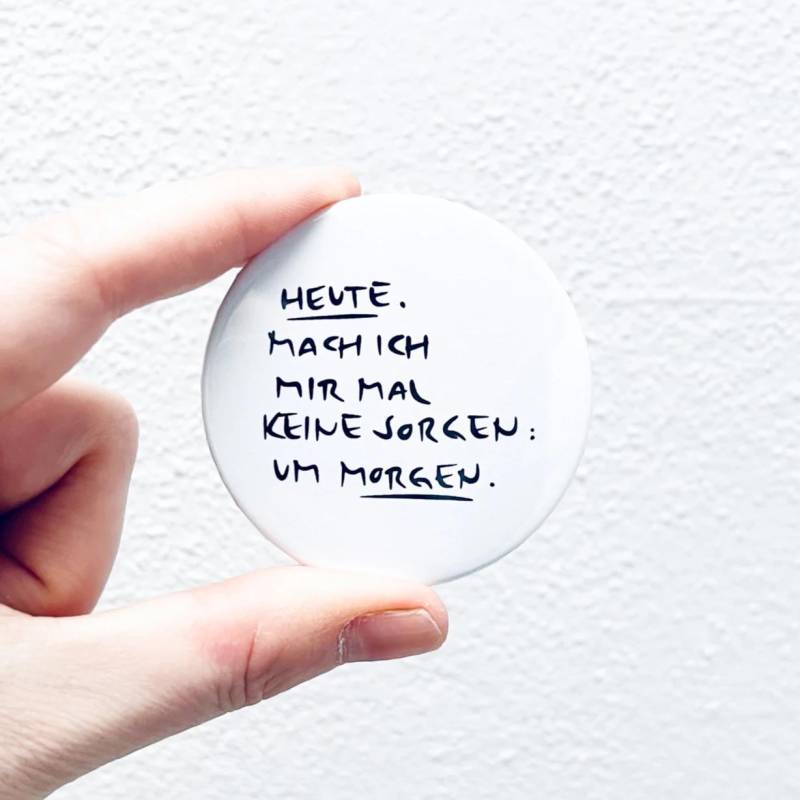 HEUTE.
MACH ICH
MIR MAL
KEINE SORGEN:
UM MORGEN.